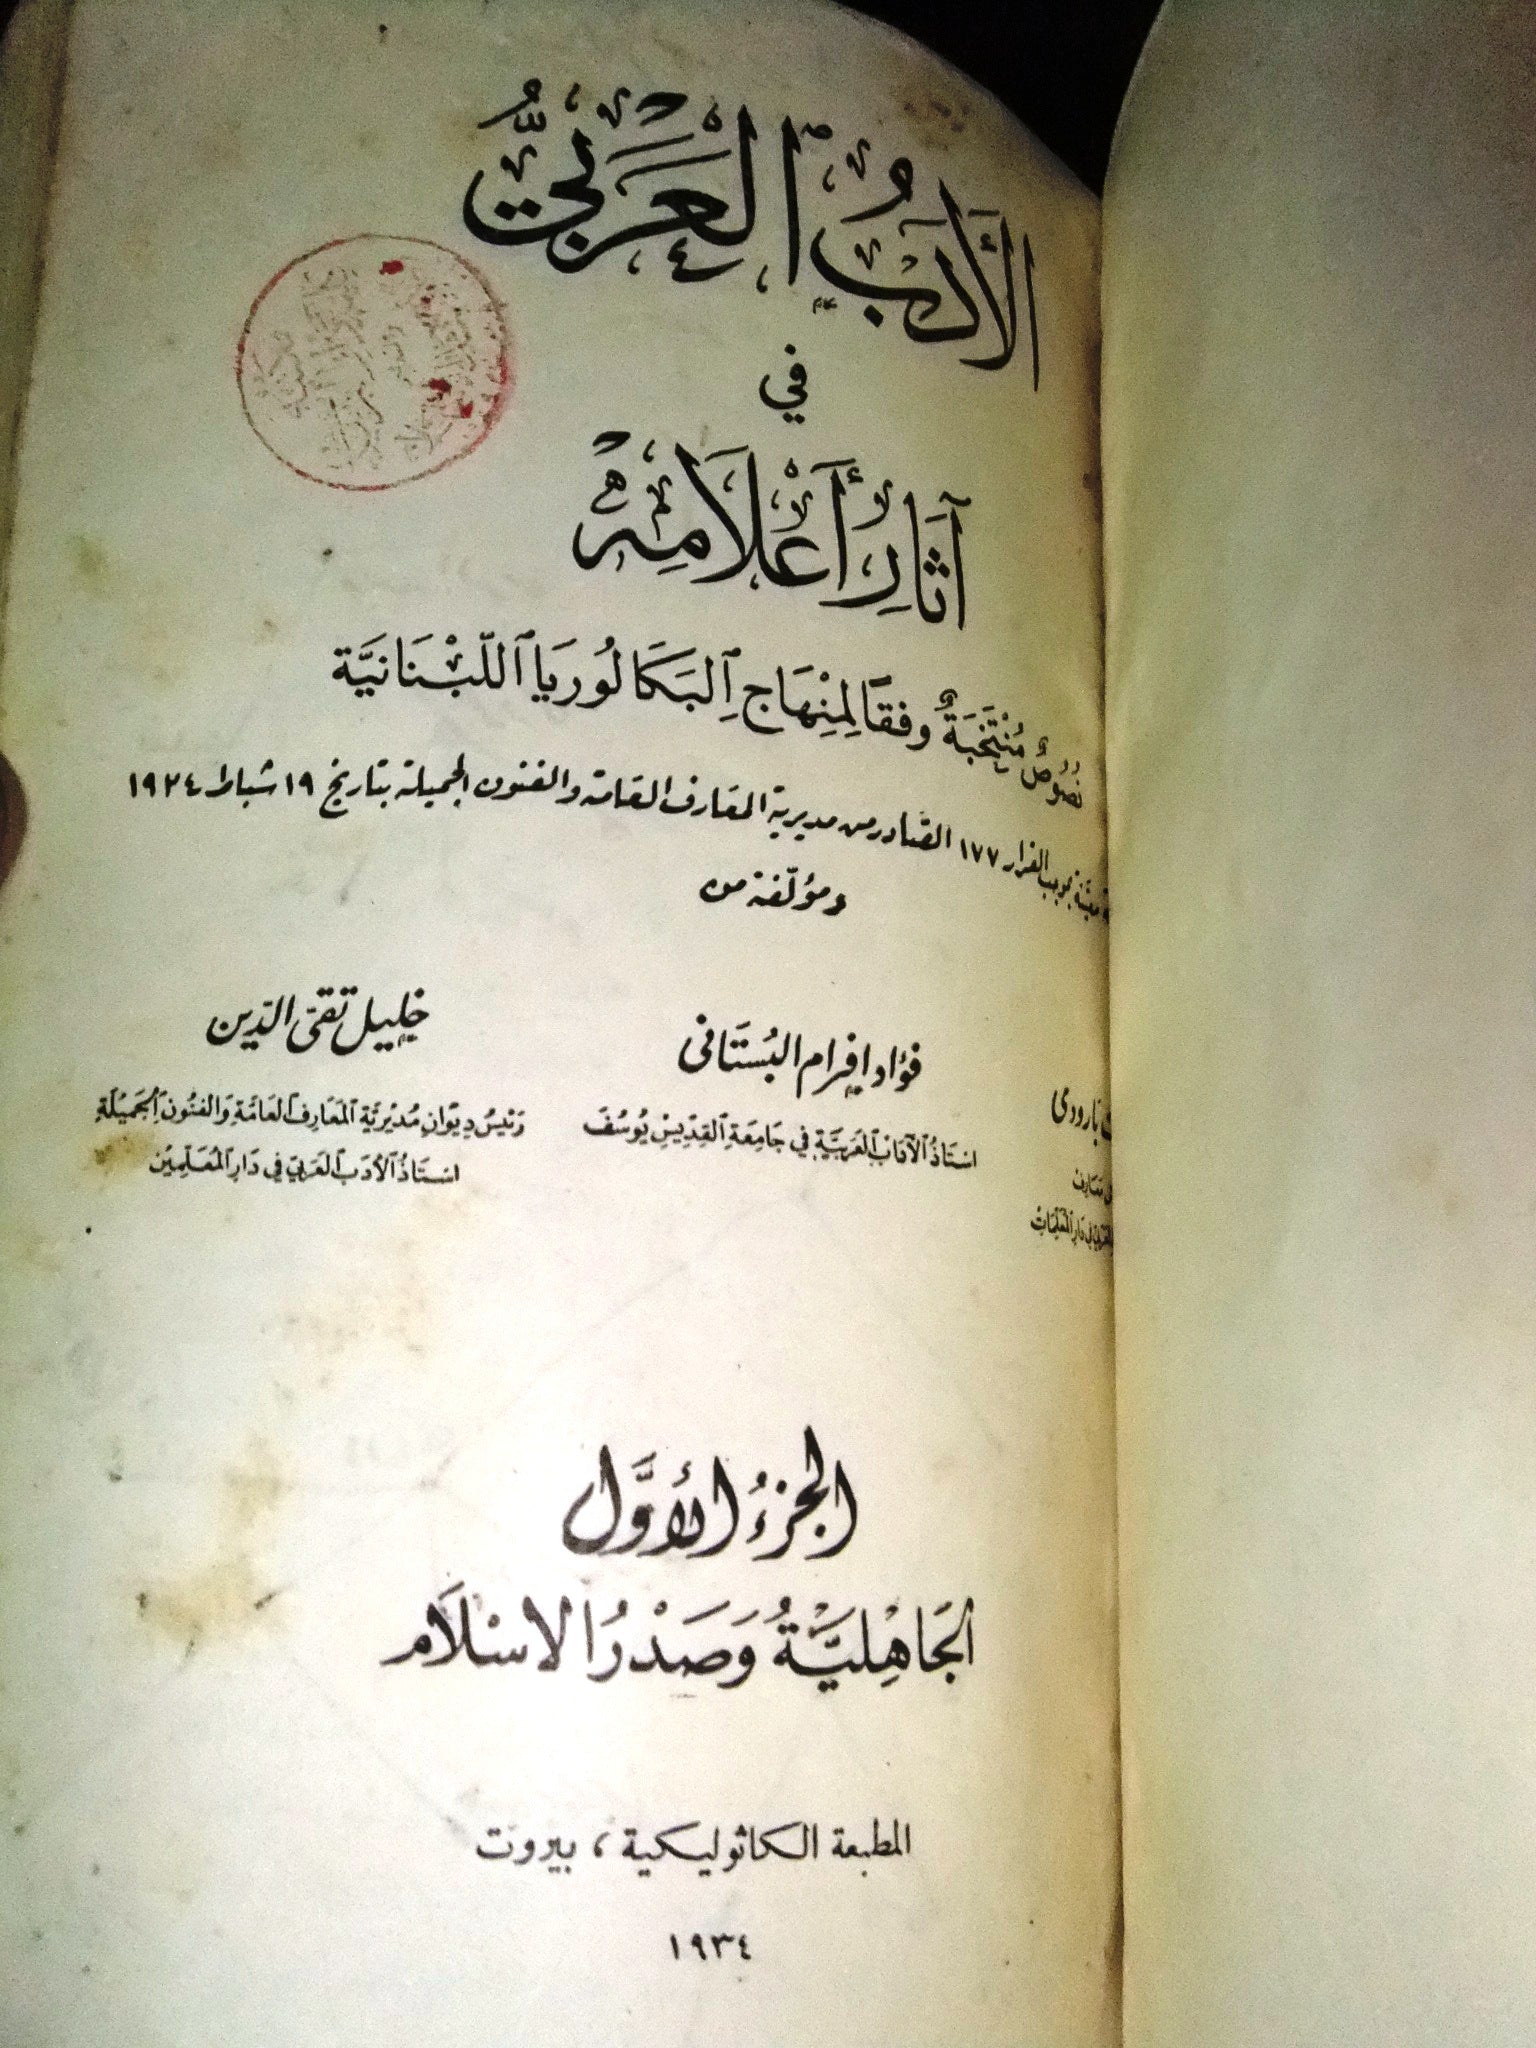 الأَدَبُ العَرَبِيُّ
في
آثَارِ أَعْلَامِهِ
نُصُوصٌ مُنْتَخَبَةٌ وفقًا لِمِنْهَاجِ البَكَالُورِيَا اللّبْنَانِيَّة
القرار ١٧٧ الصّادر من مديرية المعارف العامة والفنون الجميلة بتاريخ ١٩ شباط ١٩٢٤
ومؤلّفة من
بارودي
فؤاد إفرام البُستَاني
خليل تقيّ الدّين
اسْتَاذُ الآدَابِ العَرَبيَّةِ في جَامِعَةِ القِدِّيسِ يُوسُفَ
رَئيسُ دِيوَانِ مُديْريَّةِ المَعَارِفِ العَامَّةِ وَالفُنُونِ الجَمِيْلَةِ
مَعَارِف
دَارِ المُعَلِّمَاتْ
اسْتَاذُ الأَدَبِ العَرَبيِّ في دَارِ المُعَلِّمِيْنَ
الجزءُ الأَوَّل
الجَاهِليَّةُ وَصَدْرُ الاسْلَام
المطبعة الكاثوليكية ، بيروت
١٩٣٤